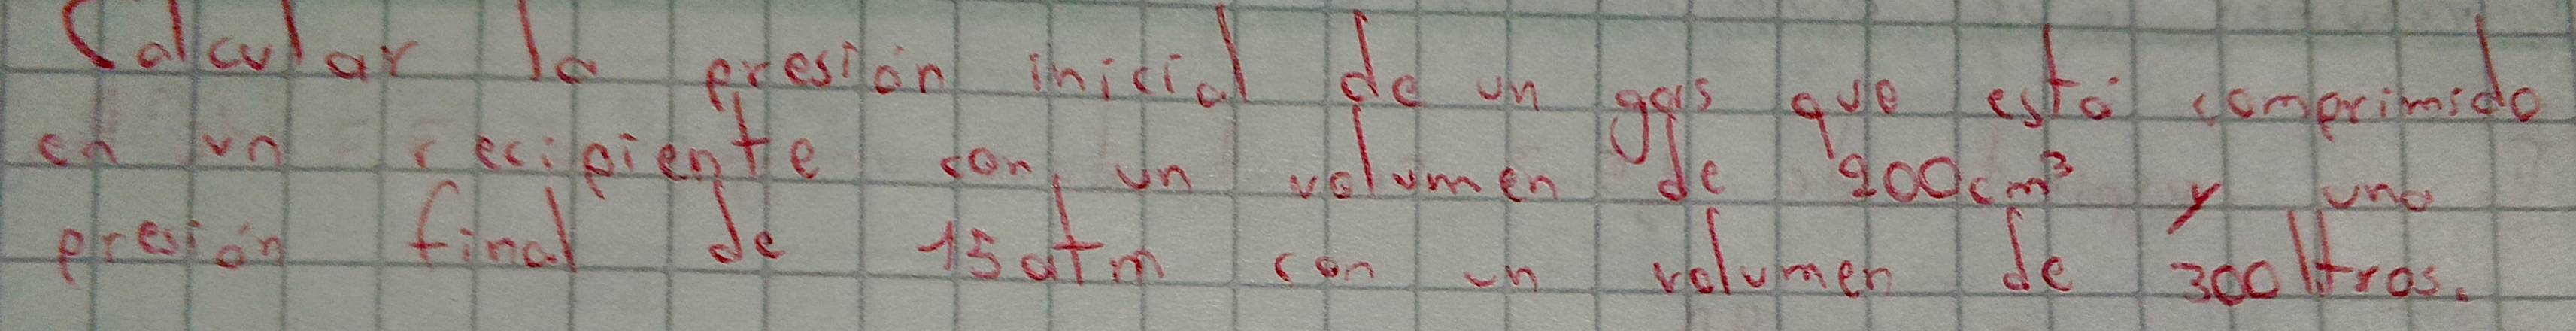 Calcular la presión inicial de un gas que está comprimido
en un recipiente con un volumen de 200cm³ y una
presión final de 15atm con un volumen de 300ltros.